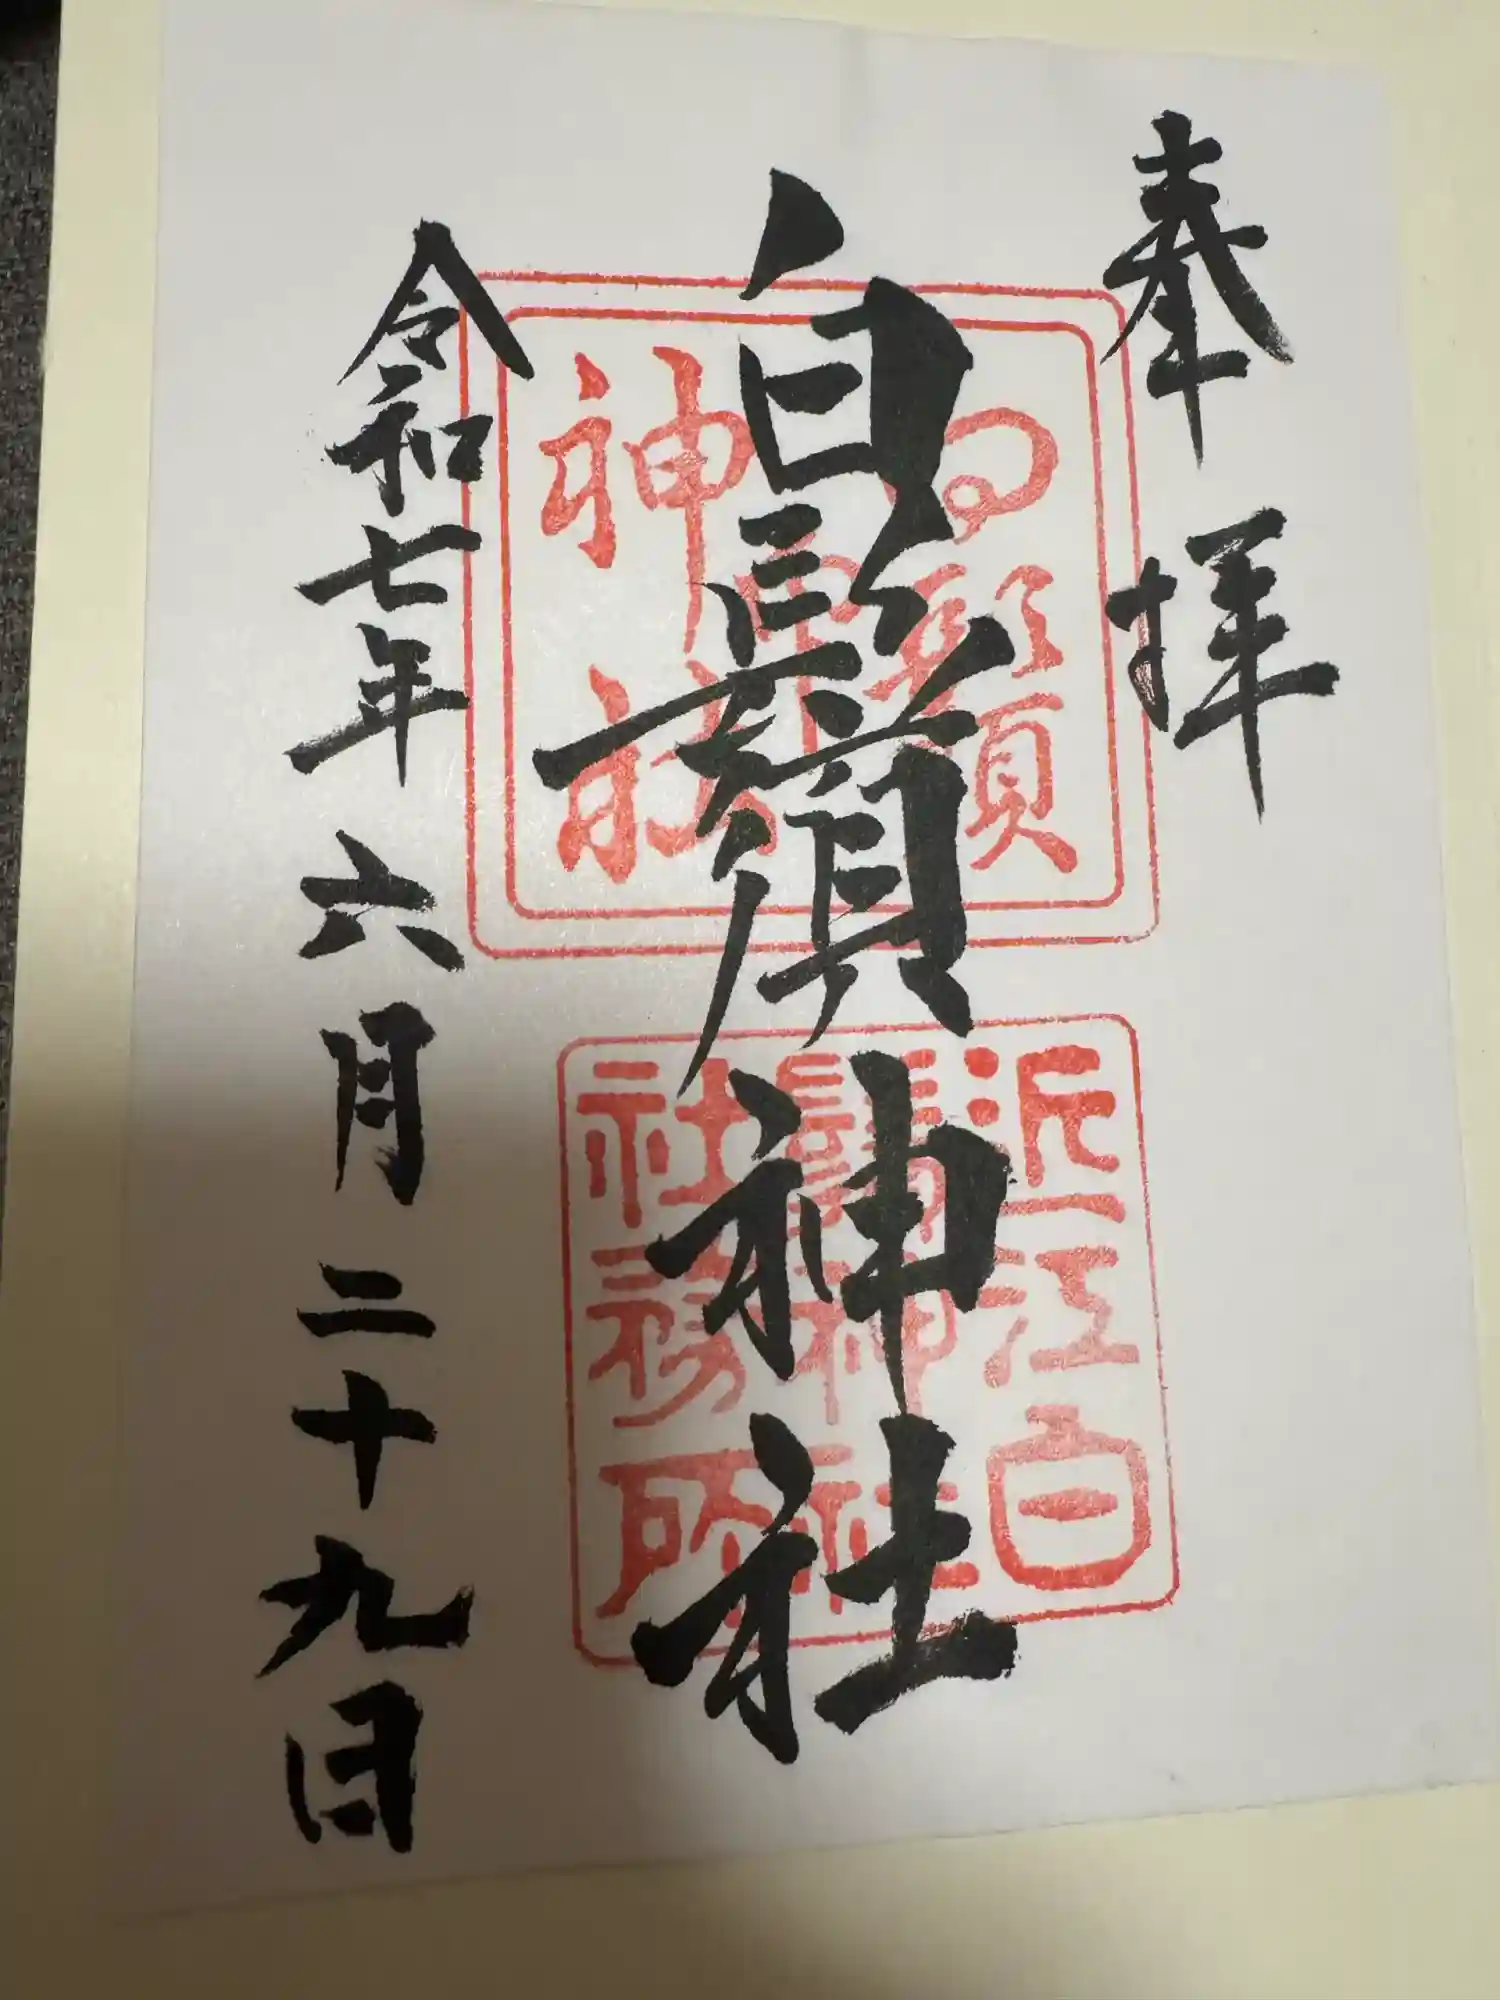 奉拝
白鬚神社
令和七年六月二十九日
白鬚神社
近江白
鬚神社
社務所